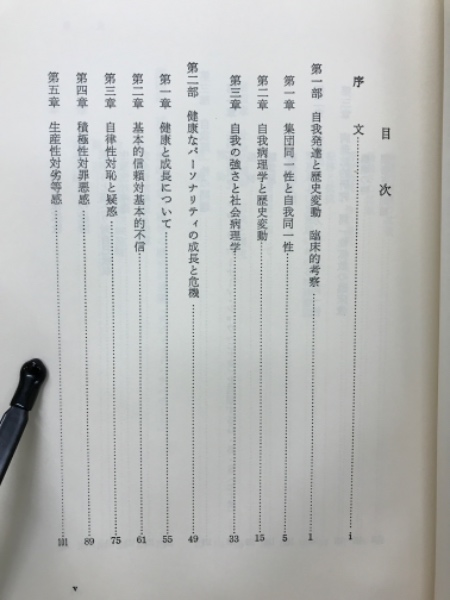 目次
序文……………i
第一部 自我発達と歴史変動 臨床的考察……………1
第一章 集団同一性と自我同一性……………5
第二章 自我病理学と歴史変動……………15
第三章 自我の強さと社会病理学……………33
第二部 健康なパーソナリティの成長と危機……………49
第一章 健康と成長について……………55
第二章 基本的信頼対基本的不信……………61
第三章 自律性対恥と疑惑……………75
第四章 積極性対罪悪感……………89
第五章 生産性対劣等感……………101
v